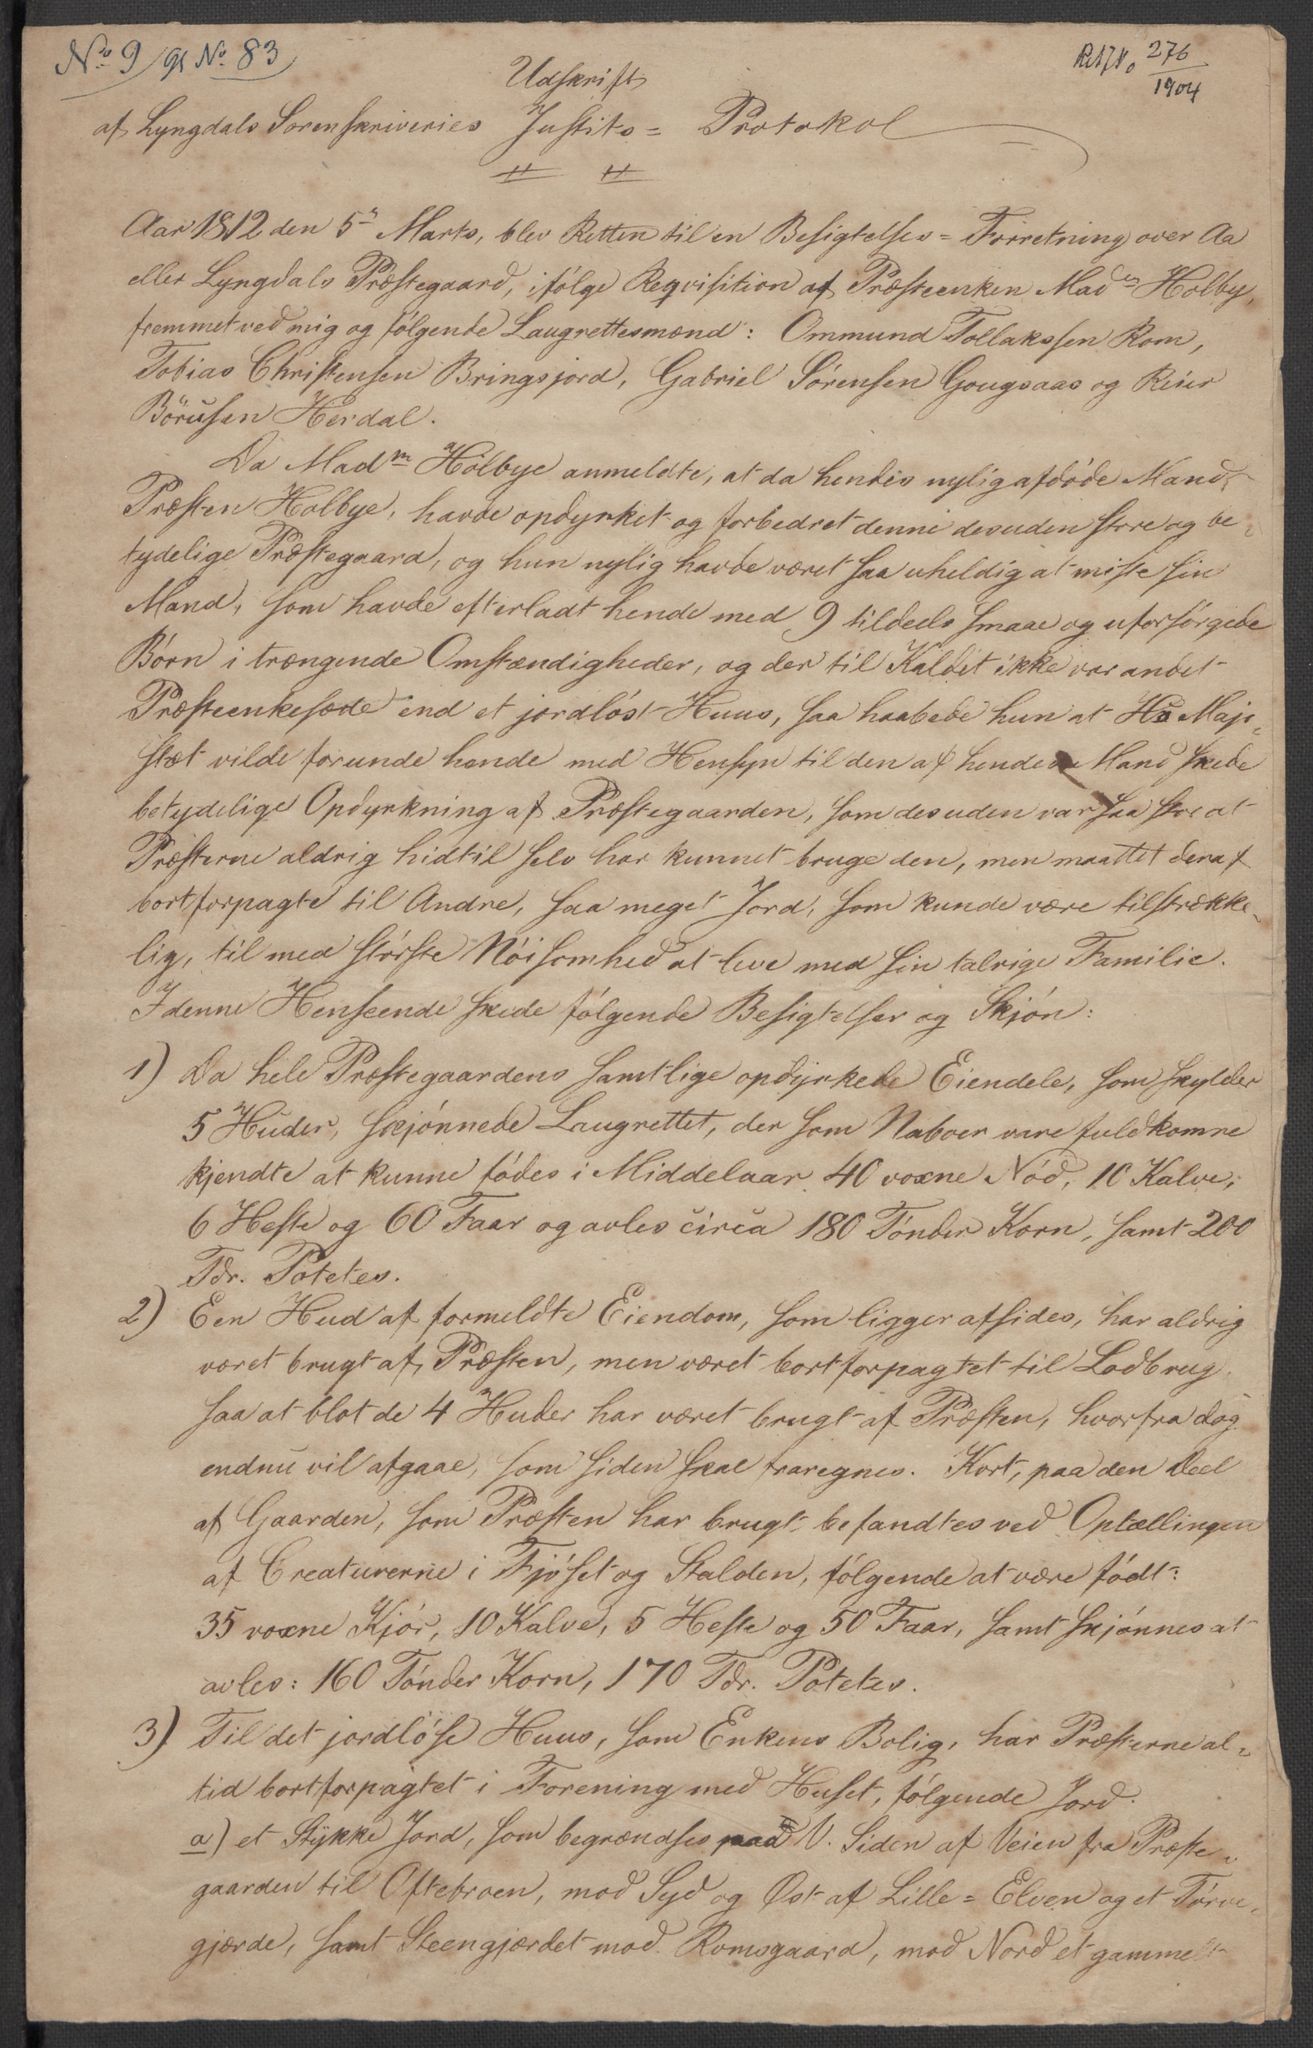 No 9 / gl No 83
276
1904
Udskrift
af Lyngdals Sorenskriveries Justits = Protokol
Aar 1812 den 5te Marts, blev Retten til en Besigtelses = Forretning over Aa
eller Lyngdals Præstegaard, ifølge Reqvisition af Præsteenken Madm Holbye,
fremmet ved mig og følgende Laugrettesmænd: Ommund Tollakssen Rom,
Tobias Christensen Bringsjord, Gabriel Sørensen Gougsaas og Reier
Børusen Herdal.
Da Madm Holbye anmeldte, at da hendes nylig afdøde Mand,
Præsten Holbye, havde opdyrket og forbedret denne desuden store og be-
tydelige Præstegaard, og hun nylig havde været saa uheldig at miste sin
Mand, som havde efterladt hende med 9 tildeels smaae og uforsørgede
Børn i trængende Omstændigheder, og der til Kaldet ikke var andet
Præsteenkesæde end et jordløst Huus, saa haabede hun at Hs Maje-
stæt vilde forunde hende med Hensyn til den af hendes Mand skede
betydelige Opdyrkning af Præstegaarden, som desuden var saa stor at
Præsterne aldrig hidtil selv har kunnet bruge den, men maattet deraf
bortforpagte til Andre, saa meget Jord, som kunde være tilstrække-
lig, til med største Nøisomhed at leve med sin talrige Familie.
I denne Henseende skede følgende Besigtelser og Skjøn:
1) Da hele Præstegaardens samtlige opdyrkede Eiendele, som skylder
5 Huder, skjønnede Laugrettet, der som Naboer vare fuldkomne
kjendte at kunne fødes i Middelaar 40 voxne Nød, 10 Kalve,
6 Heste og 60 Faar og avles circa 180 Tønder Korn, samt 200
Tdr. Potetes.
2) Een Hud af formeldte Eiendom, som ligger afsides, har aldrig
været brugt af Præsten, men været bortforpagtet til Lodbrug
saa at blot de 4 Huder har været brugt af Præsten, hvorfra dog
endnu vil afgaae, som siden skal fraregnes. Kort, paa den Deel
af Gaarden, som Præsten har brugt, befandtes ved Optællingen
af Creaturerne i Fjøset og Stalden, følgende at være født:
35 voxne Kjør, 10 Kalve, 5 Heste og 50 Faar, samt skjønnes at
avles: 160 Tønder Korn, 170 Tdr. Potetes.
3) Til det jordløse Huus, som Enkens Bolig, har Præsterne al-
tid bortforpagtet i Forening med Huset, følgende Jord.
a) et Stykke Jord, som begrændses paa V. Siden af Veien fra Præste-
gaarden til Oftebroen, mod Syd og Øst af Lille = Elven og et Törve-
gjærde, samt Steengjærdet mod Romsgaard, mod Nord et gammelt